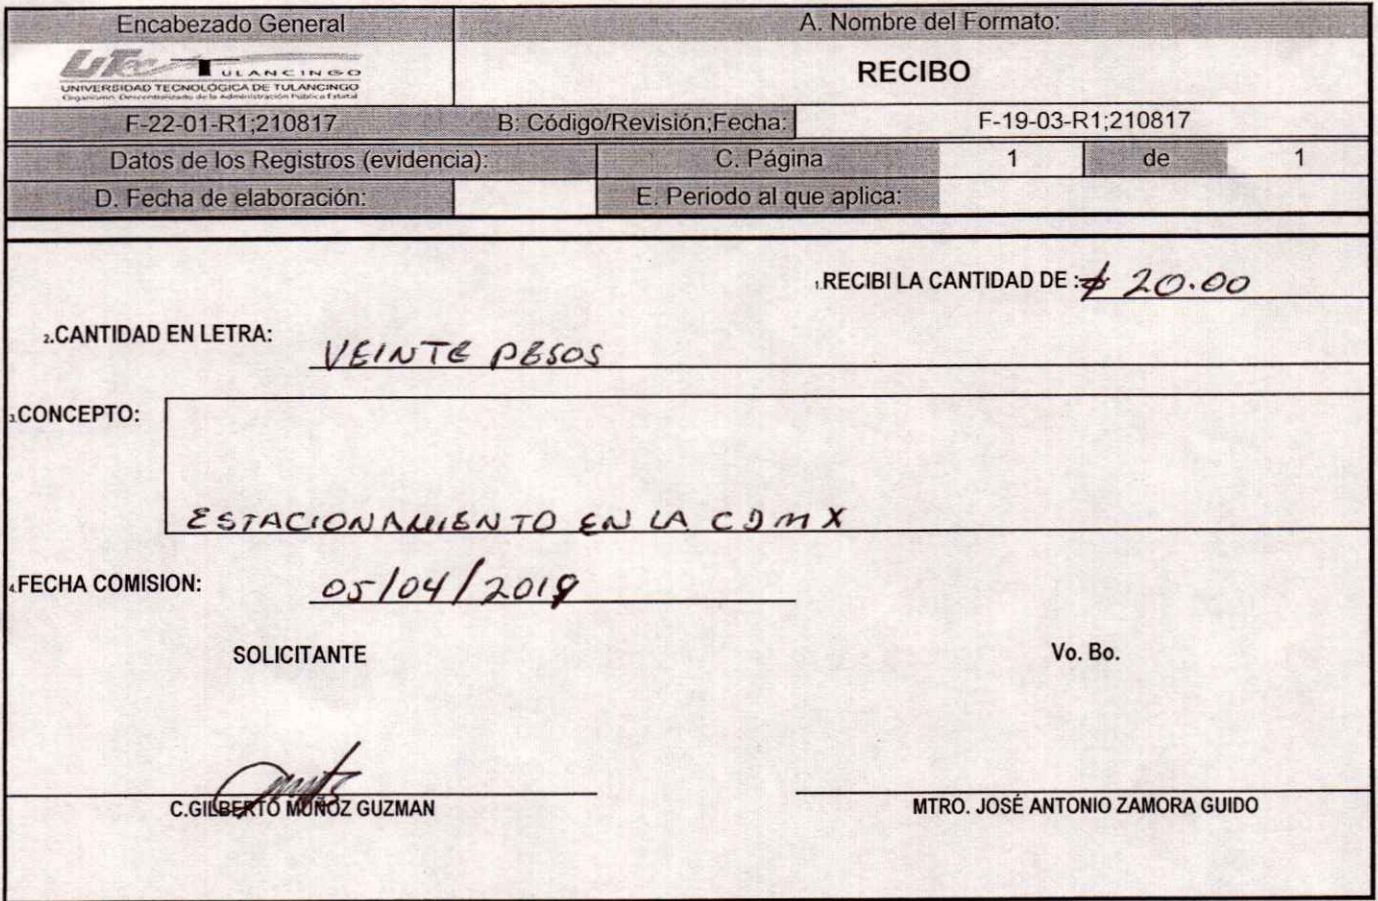 Encabezado General
A. Nombre del Formato:
UTec TULANCINGO
UNIVERSIDAD TECNOLÓGICA DE TULANCINGO
Organismo Descentralizado de la Administración Pública Estatal
RECIBO
F-22-01-R1;210817 B: Código/Revisión;Fecha: F-19-03-R1;210817
Datos de los Registros (evidencia): C. Página 1 de 1
D. Fecha de elaboración: E. Periodo al que aplica:
1.RECIBI LA CANTIDAD DE : $ 20.00
2.CANTIDAD EN LETRA: VEINTE PESOS
3.CONCEPTO:
ESTACIONAMIENTO EN LA CDMX
4.FECHA COMISION: 05/04/2019
SOLICITANTE Vo. Bo.
C.GILBERTO MUÑOZ GUZMAN MTRO. JOSÉ ANTONIO ZAMORA GUIDO